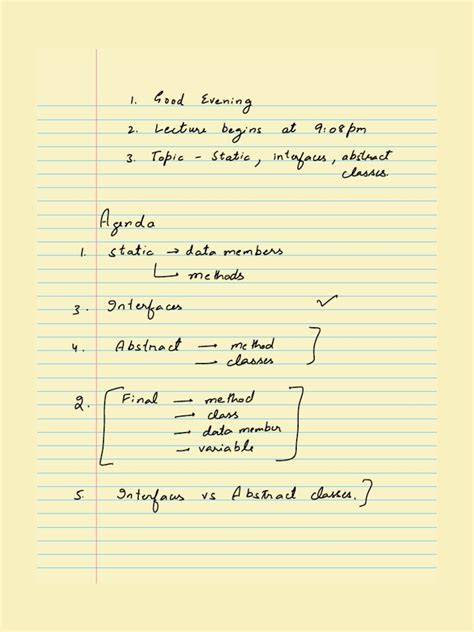 1. Good Evening
2. Lecture begins at 9:08pm
3. Topic - Static, intefaces, abstract
classes.
Agenda
1. Static → data members
↳ methods
3. Interfaces ✓
4. Abstract → method
→ classes
2. Final → method
→ class
→ data member
→ variable
5. Interfaces vs Abstract classes.